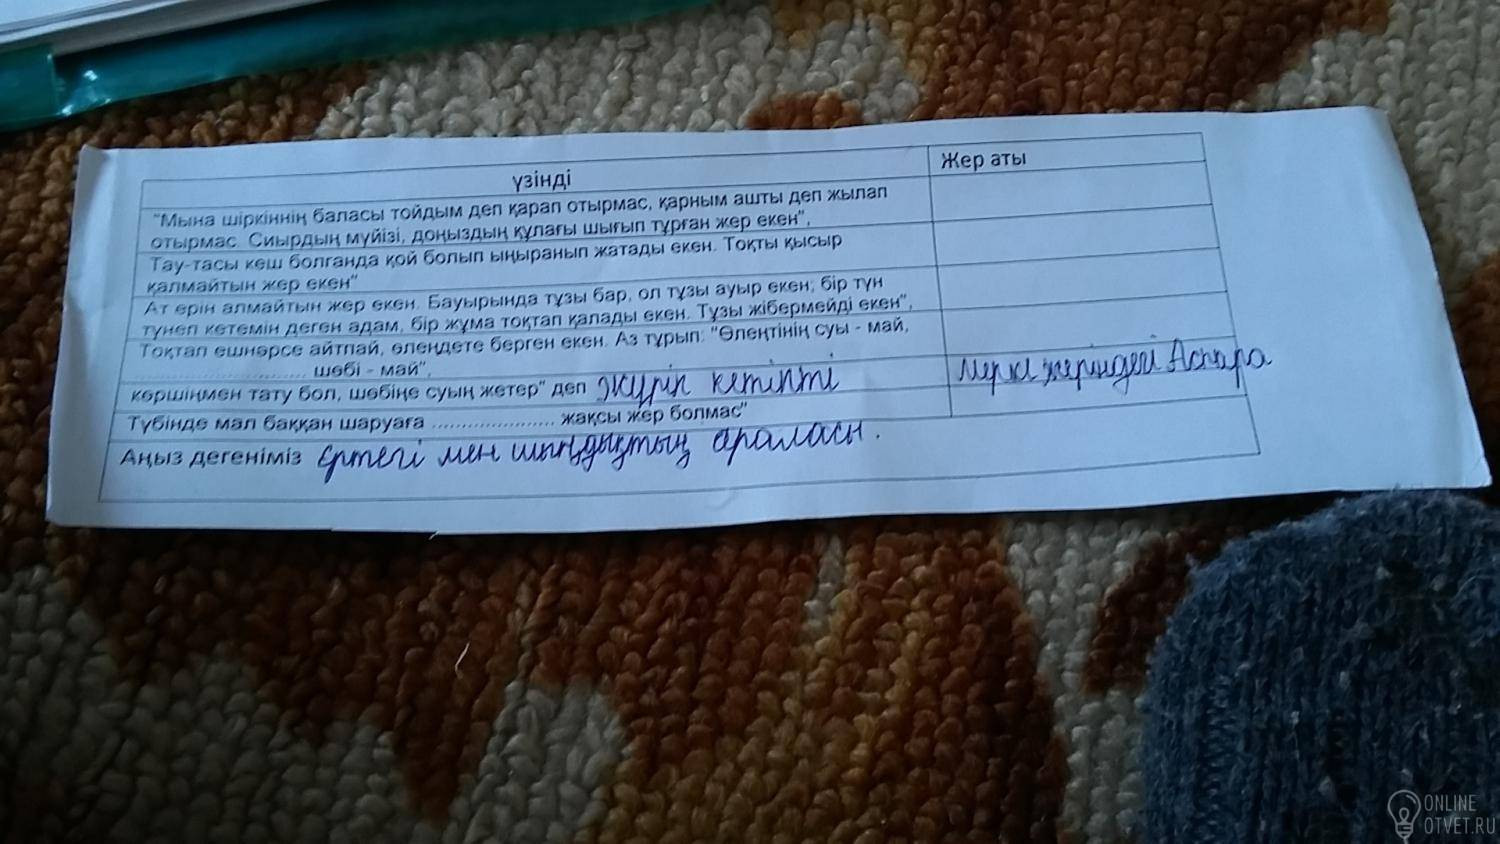 үзінді
Жер аты
"Мына шіркіннің баласы тойдым деп қарап отырмас, қарным ашты деп жылап
отырмас. Сиырдың мүйізі, доңыздың құлағы шығып тұрған жер екен",
Тау-тасы кеш болғанда қой болып ыңыранып жатады екен. Тоқты қысыр
қалмайтын жер екен"
Ат ерін алмайтын жер екен. Бауырында тұзы бар, ол тұзы ауыр екен; бір түн
түнеп кетемін деген адам, бір жұма тоқтап қалады екен. Тұзы жібермейді екен",
Тоқтап ешнәрсе айтпай, өлеңдете берген екен. Аз тұрып: "Өлеңтінің суы - май,
............................ шөбі - май",
көршіңмен тату бол, шөбіңе суың жетер" деп жүріп кетіпті
Мерке жеріндегі Аспара
Түбінде мал баққан шаруаға ..................... жақсы жер болмас"
Аңыз дегеніміз ертегі мен шындықтың араласы.
ONLINE
OTVET.RU